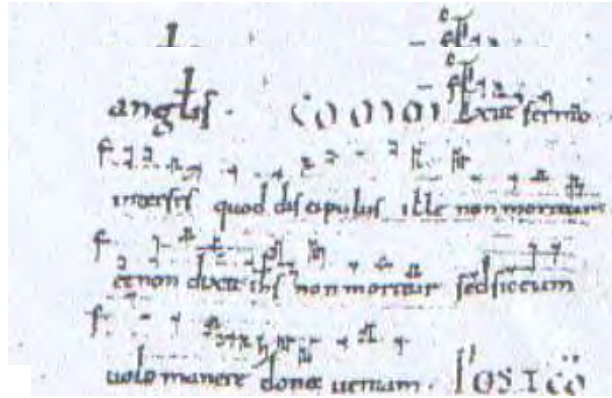 anglis. Exiit sermo
inter frs quod discipulus ille non moritur
et non dixit ihs non moritur sed sic eum
uolo manere donec ueniam.